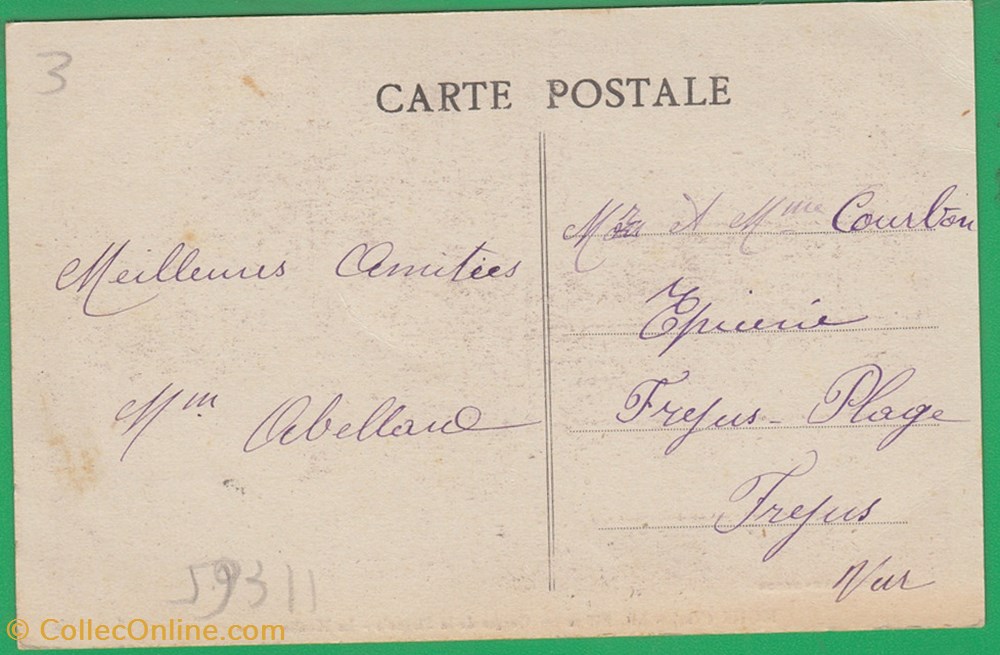 3
CARTE POSTALE
Meilleures Amitiées
Mm Abellard
Mr et Mme Courbon
Epicerie
Frejus-Plage
Frejus
Var
59311
© CollecOnline.com